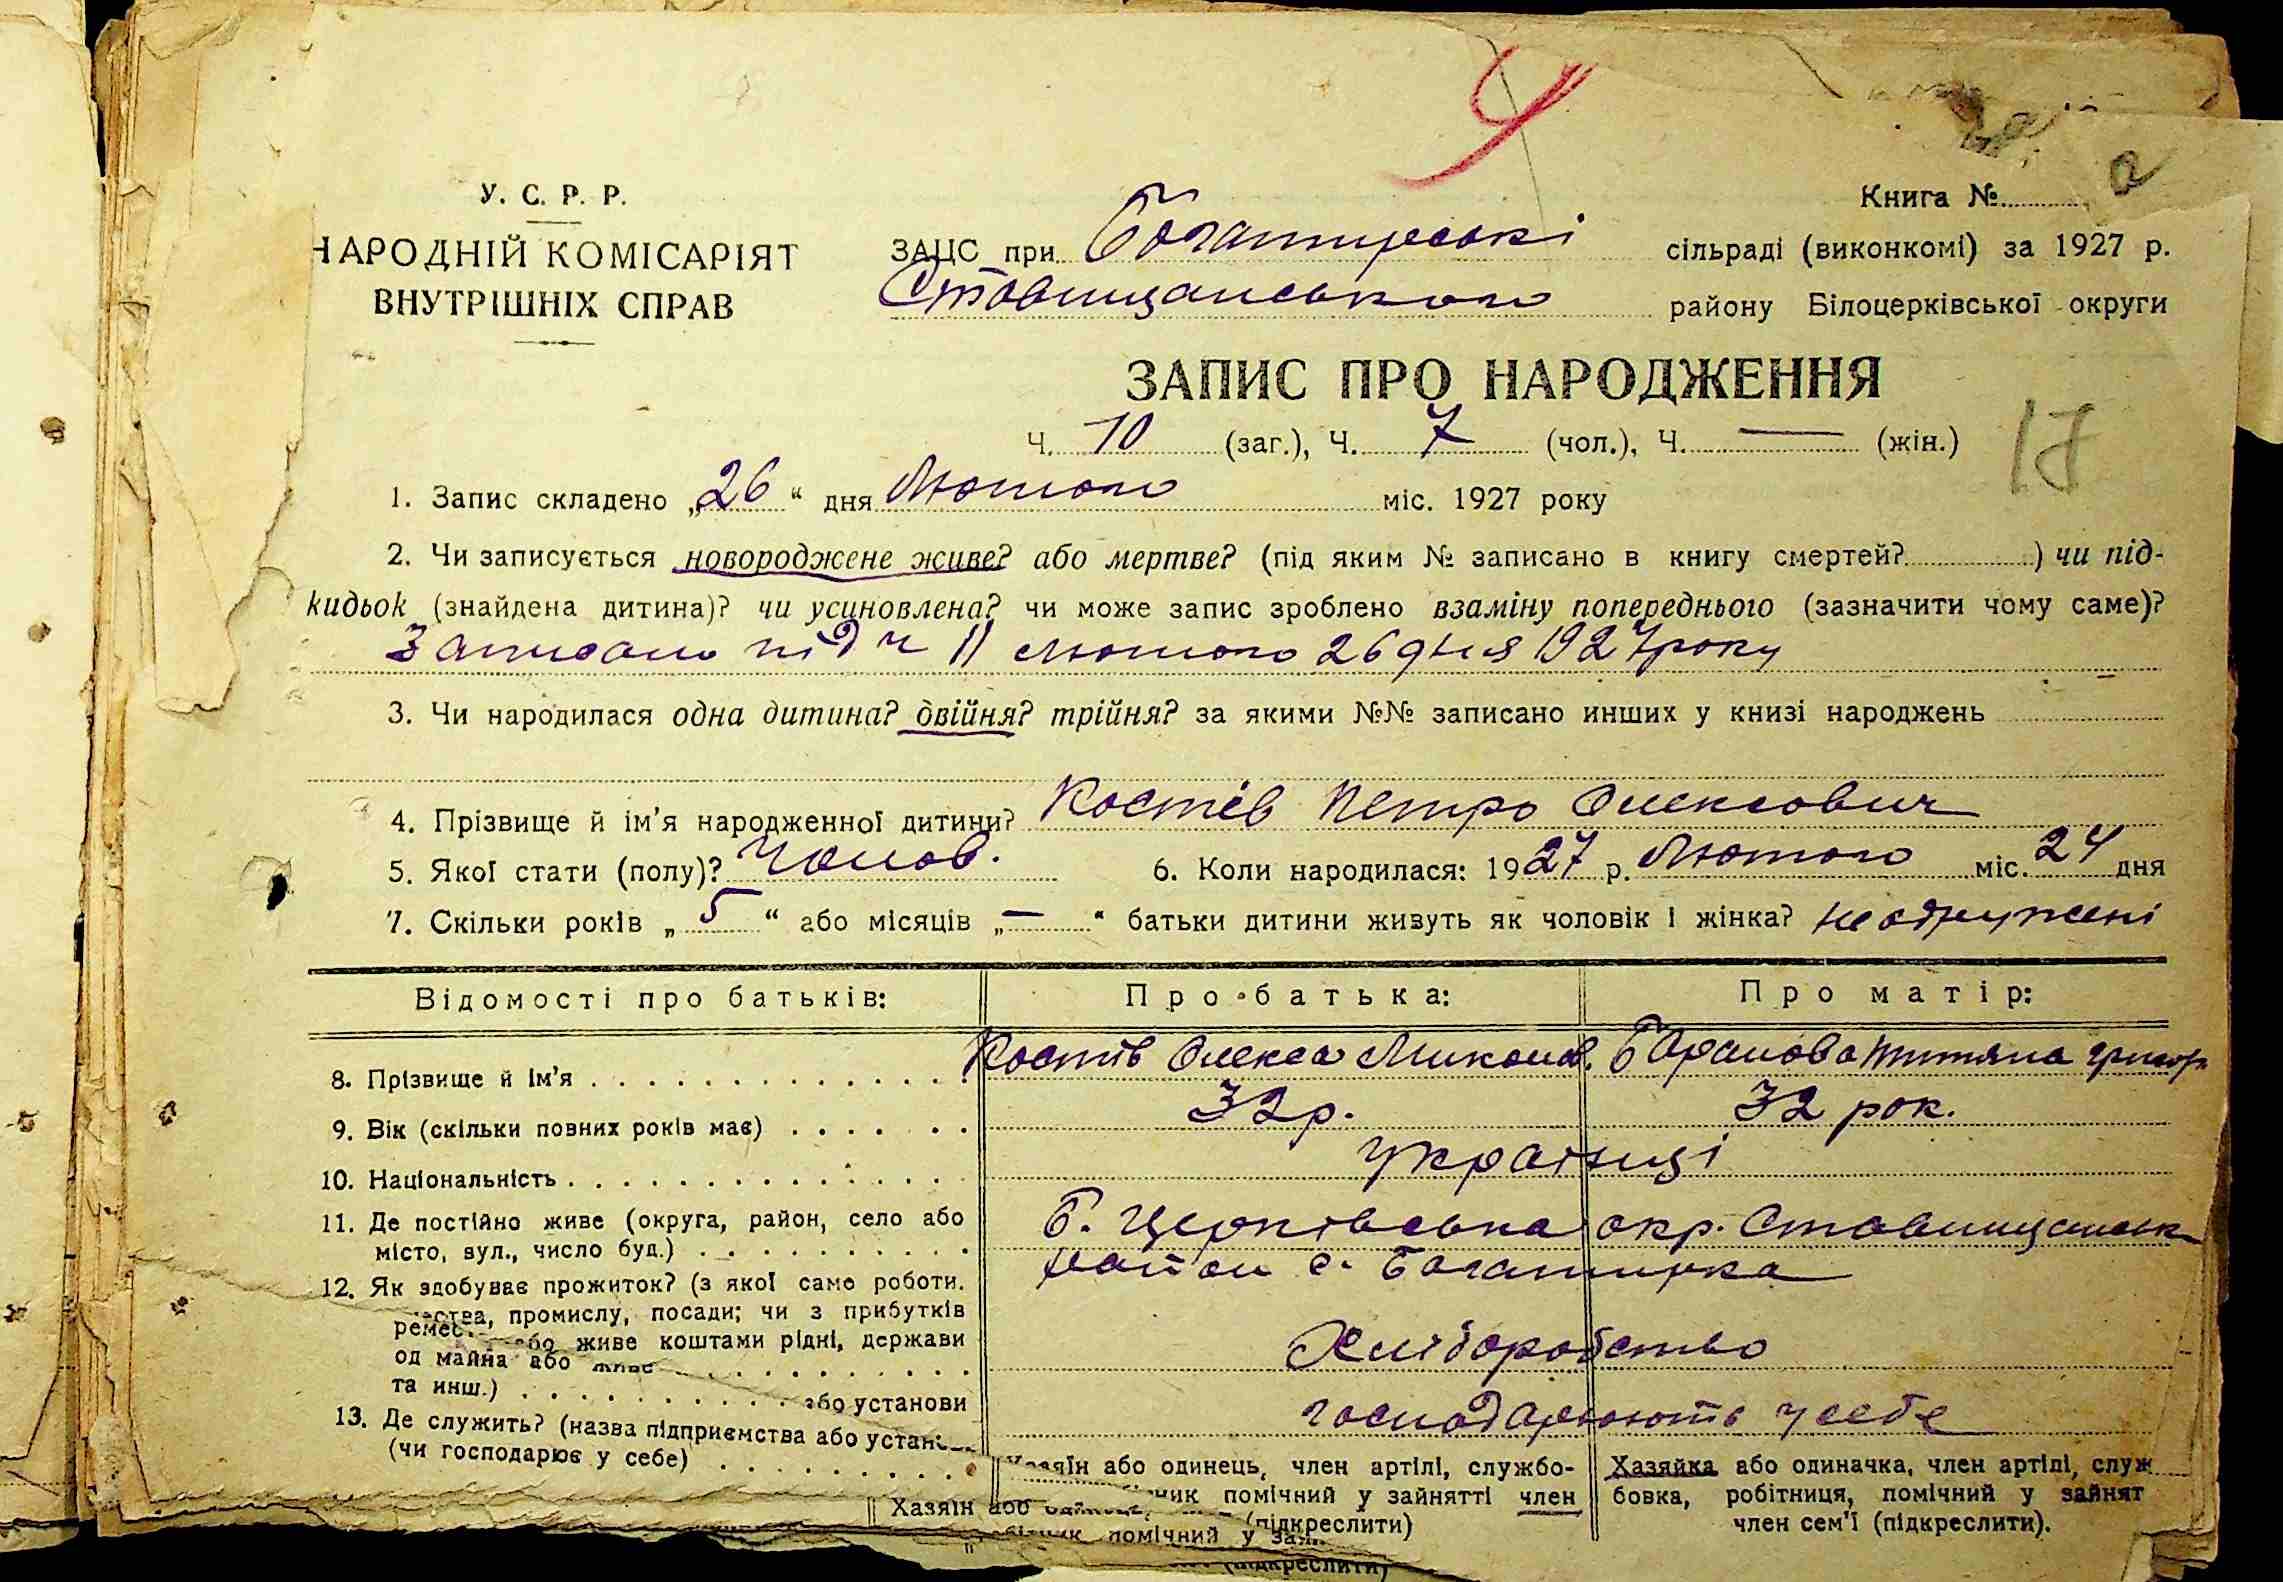 У. С. Р. Р.
НАРОДНІЙ КОМІСАРІЯТ
ВНУТРІШНІХ СПРАВ
Книга №
ЗАЦС при Богатирські сільраді (виконкомі) за 1927 р.
Ставищанського району Білоцерківської округи
ЗАПИС ПРО НАРОДЖЕННЯ
Ч. 10 (заг.), Ч. 7 (чол.), Ч. — (жін.)
17
1. Запис складено „26“ дня Лютого міс. 1927 року
2. Чи записується новороджене живе? або мертве? (під яким № записано в книгу смертей? ) чи під-
кидьок (знайдена дитина)? чи усиновлена? чи може запис зроблено взаміну попереднього (зазначити чому саме)?
Записано під ч 11 лютого 26 дня 1927 року
3. Чи народилася одна дитина? двійня? трійня? за якими №№ записано инших у книзі народжень
4. Прізвище й ім'я народженної дитини? Костів Петро Олексович
5. Якої стати (полу)? Чолов. 6. Коли народилася: 1927 р. Лютого міс. 24 дня
7. Скільки років „5“ або місяців „—“ батьки дитини живуть як чоловік і жінка? неодружені
Відомості про батьків: Про батька: Про матір:
8. Прізвище й ім'я Костів Олекса Миколов. Баранова Титяна Григор
9. Вік (скільки повних років має) 32 р. 32 рок.
10. Національність Українці
11. Де постійно живе (округа, район, село або
місто, вул., число буд.) Б. Церківська окр. Ставищанськ
район с. Богатирка
12. Як здобуває прожиток? (з якої само роботи.
ремес ества, промислу, посади; чи з прибутків
од майна або живе коштами рідні, держави
та инш.) Хліборобство
або установи
13. Де служить? (назва підприємства або устан
(чи господарює у себе) господарюють у себе
Хазяїн або одинець, член артілі, службо-
ник помічний у зайнятті член
(підкреслити)
Хазяйка або одиначка, член артілі, служ
бовка, робітниця, помічний у зайнят
член сем'ї (підкреслити).
Хазяїн або
помічний у зай
(підкреслити)